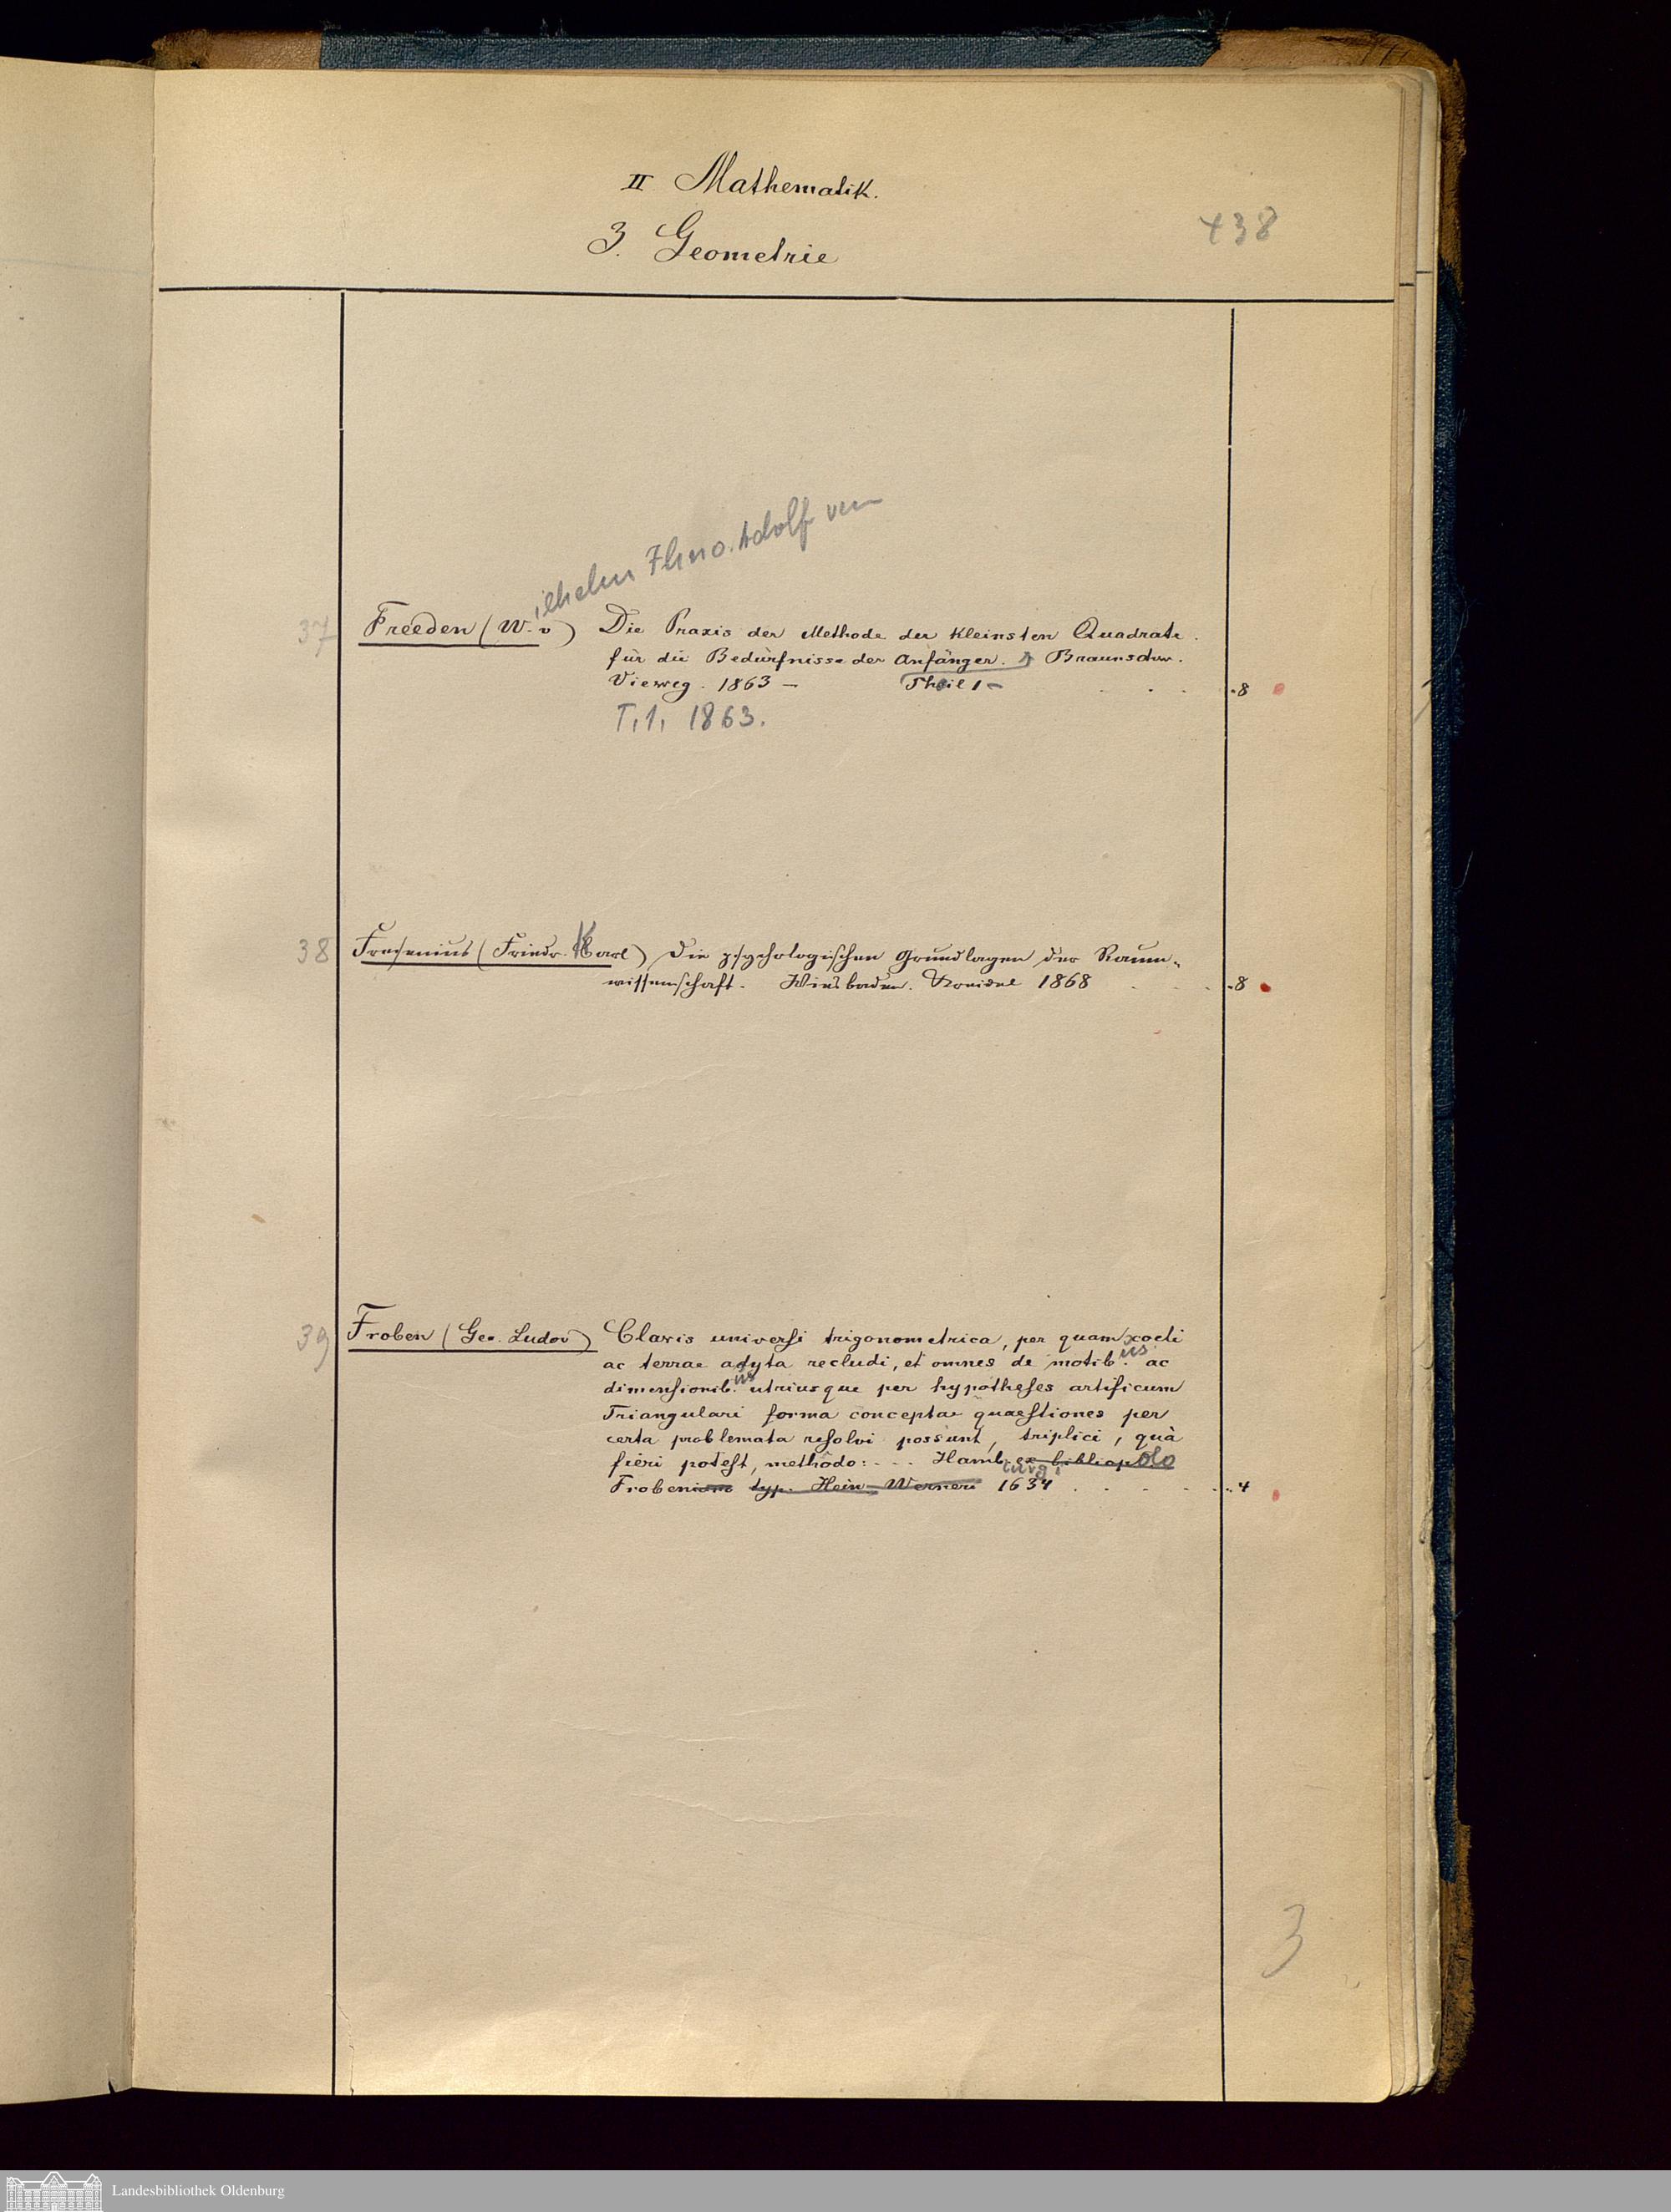 II Mathematik.
438
3. Geometrie
ilhelm Ihno Adolf von
37 Freeden (W. v) Die Praxis der Methode der kleinsten Quadrate.
für die Bedürfnisse der Anfänger. Braunschw.
Vieweg. 1863 – Theil 1 – . . . 8
T. 1. 1863.
38 Fresenius (Friedr. Karl) Die psychologischen Grundlagen der Raum-
wissenschaft. Wiesbaden. Kreidel 1868 . . . 8
39 Froben (Geo. Ludov) Clavis universi trigonometrica, per quam coeli
ac terrae adyta recludi, et omnes de motib.us ac
dimensionib.us utriusque per hypotheses artificum
Triangulari forma conceptae quaestiones per
certa problemata resolvi possunt, triplici, quà
fieri potest, methodo: - - - Hamburgi ex bibliopolo
Frobeniano typ. Hein Werneri 1634 . . . . 4
3
Landesbibliothek Oldenburg